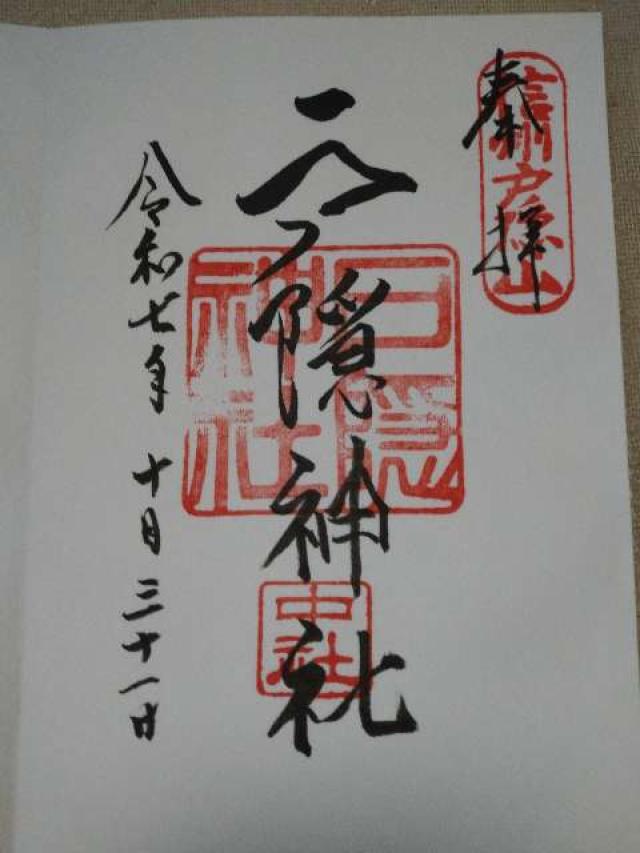 奉拝
信州戸隠山
戸隠神社
戸隠
神社
中社
令和七年 十月 三十一日